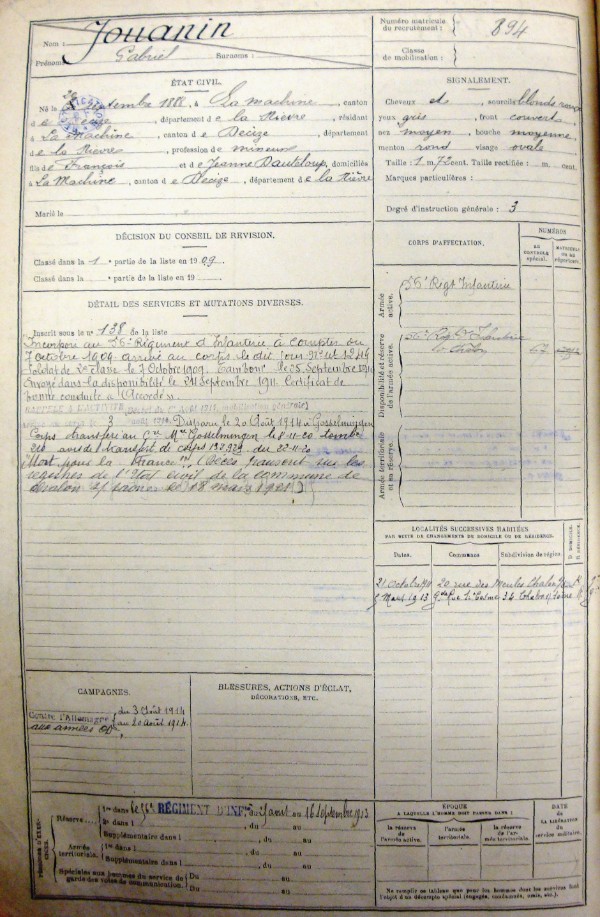 Nom : Jouanin
Prénoms : Gabriel Surnoms :
Numéro matricule du recrutement : 894
Classe de mobilisation :
ÉTAT CIVIL.
Né le Septembre 1888, à La Machine, canton
de Decize, département de la Nièvre, résidant
à La Machine, canton de Decize, département
de la Nièvre, profession de mineur
fils de François et de Jeanne Dauteloup, domiciliés
à La Machine, canton de Decize, département de la Nièvre
Marié le
SIGNALEMENT.
Cheveux et sourcils blonds
yeux gris, front couvert
nez moyen, bouche moyenne
menton rond visage ovale
Taille : 1 m. 75 cent. Taille rectifiée : m. cent.
Marques particulières :
Degré d'instruction générale : 3
DÉCISION DU CONSEIL DE REVISION.
Classé dans la 1e partie de la liste en 1909.
Classé dans la partie de la liste en 19
DÉTAIL DES SERVICES ET MUTATIONS DIVERSES.
Inscrit sous le n° 138 de la liste
Incorporé au 56e Régiment d'Infanterie à compter du
7 octobre 1909 arrivé au corps le dit jour
Soldat de 2e classe le 7 Octobre 1909. Tambour le 25 Septembre 1910
Envoyé dans la disponibilité le 24 Septembre 1911. Certificat de
bonne conduite "Accordé".
RAPPELÉ À L'ACTIVITÉ
3 Disparu le 20 Août 1914 à Gosselmingen
Corps transféré au Cre Mre Gosselmingen le 8-11-20 Tombe
210
Mort pour la France
registres de l'État civil de la commune de
Chalon s/ Saône le 18 mars 1921
CORPS D'AFFECTATION.
NUMÉROS
AU CONTROLE SPÉCIAL.
MATRICULE OU AU RÉPERTOIRE.
Armée active.
56e Régt Infanterie
Disponibilité et réserve de l'armée active.
56e Rég. d'Infanterie
Chalon
Armée territoriale et sa réserve.
LOCALITÉS SUCCESSIVES HABITÉES
PAR SUITE DE CHANGEMENTS DE DOMICILE OU DE RÉSIDENCE.
Dates. Communes. Subdivision de région. D. DOMICILE. R. RÉSIDENCE.
21 Octobre 20 rue des Meules Chalon
Mars 1913 Gde Rue St Cosme 34 Chalon s/ Saône
CAMPAGNES.
Contre l'Allemagne du 3 Août 1914
au 20 Août 1914
BLESSURES, ACTIONS D'ÉCLAT, DÉCORATIONS, ETC.
PÉRIODES D'EXERCICES.
Réserve
1re dans le 56e RÉGIMENT D'INFie, du 31 août au 16 septembre 1913
2e dans l , du au
Supplémentaire dans l , du au
Armée territoriale.
1re dans l , du au
Supplémentaire dans l , du au
Spéciales aux hommes du service de garde des voies de communication.
Du au
Du au
ÉPOQUE
A LAQUELLE L'HOMME DOIT PASSER DANS :
la réserve de l'armée active.
l'armée territoriale.
la réserve de l'armée territoriale.
DATE de LA LIBÉRATION du service militaire.
Ne remplir ce tableau que pour les hommes dont les services font
l'objet d'un décompte spécial (engagés, condamnés, omis, etc.).